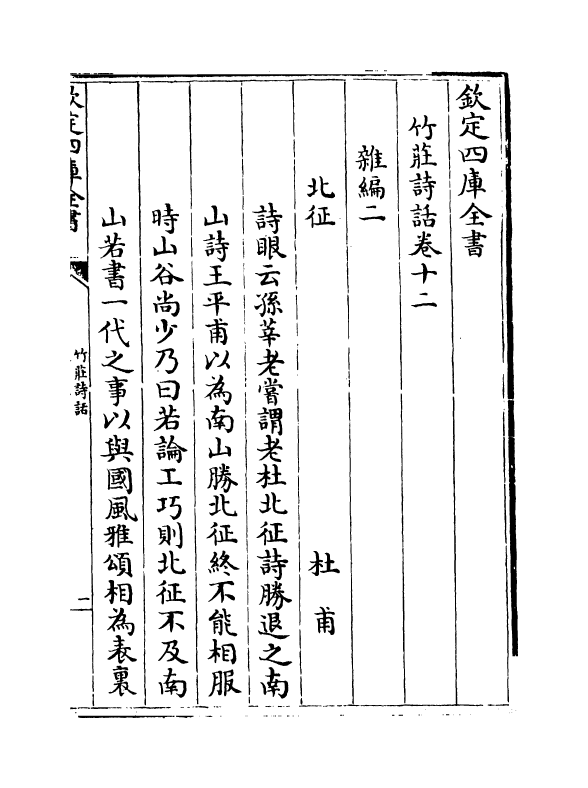 欽定四庫全書
竹莊詩話卷十二
雜編二
北征 杜甫
詩眼云孫莘老嘗謂老杜北征詩勝退之南
山詩王平甫以為南山勝北征終不能相服
時山谷尚少乃曰若論工巧則北征不及南
山若書一代之事以與國風雅頌相為表裏
欽定四庫全書
竹莊詩話
一